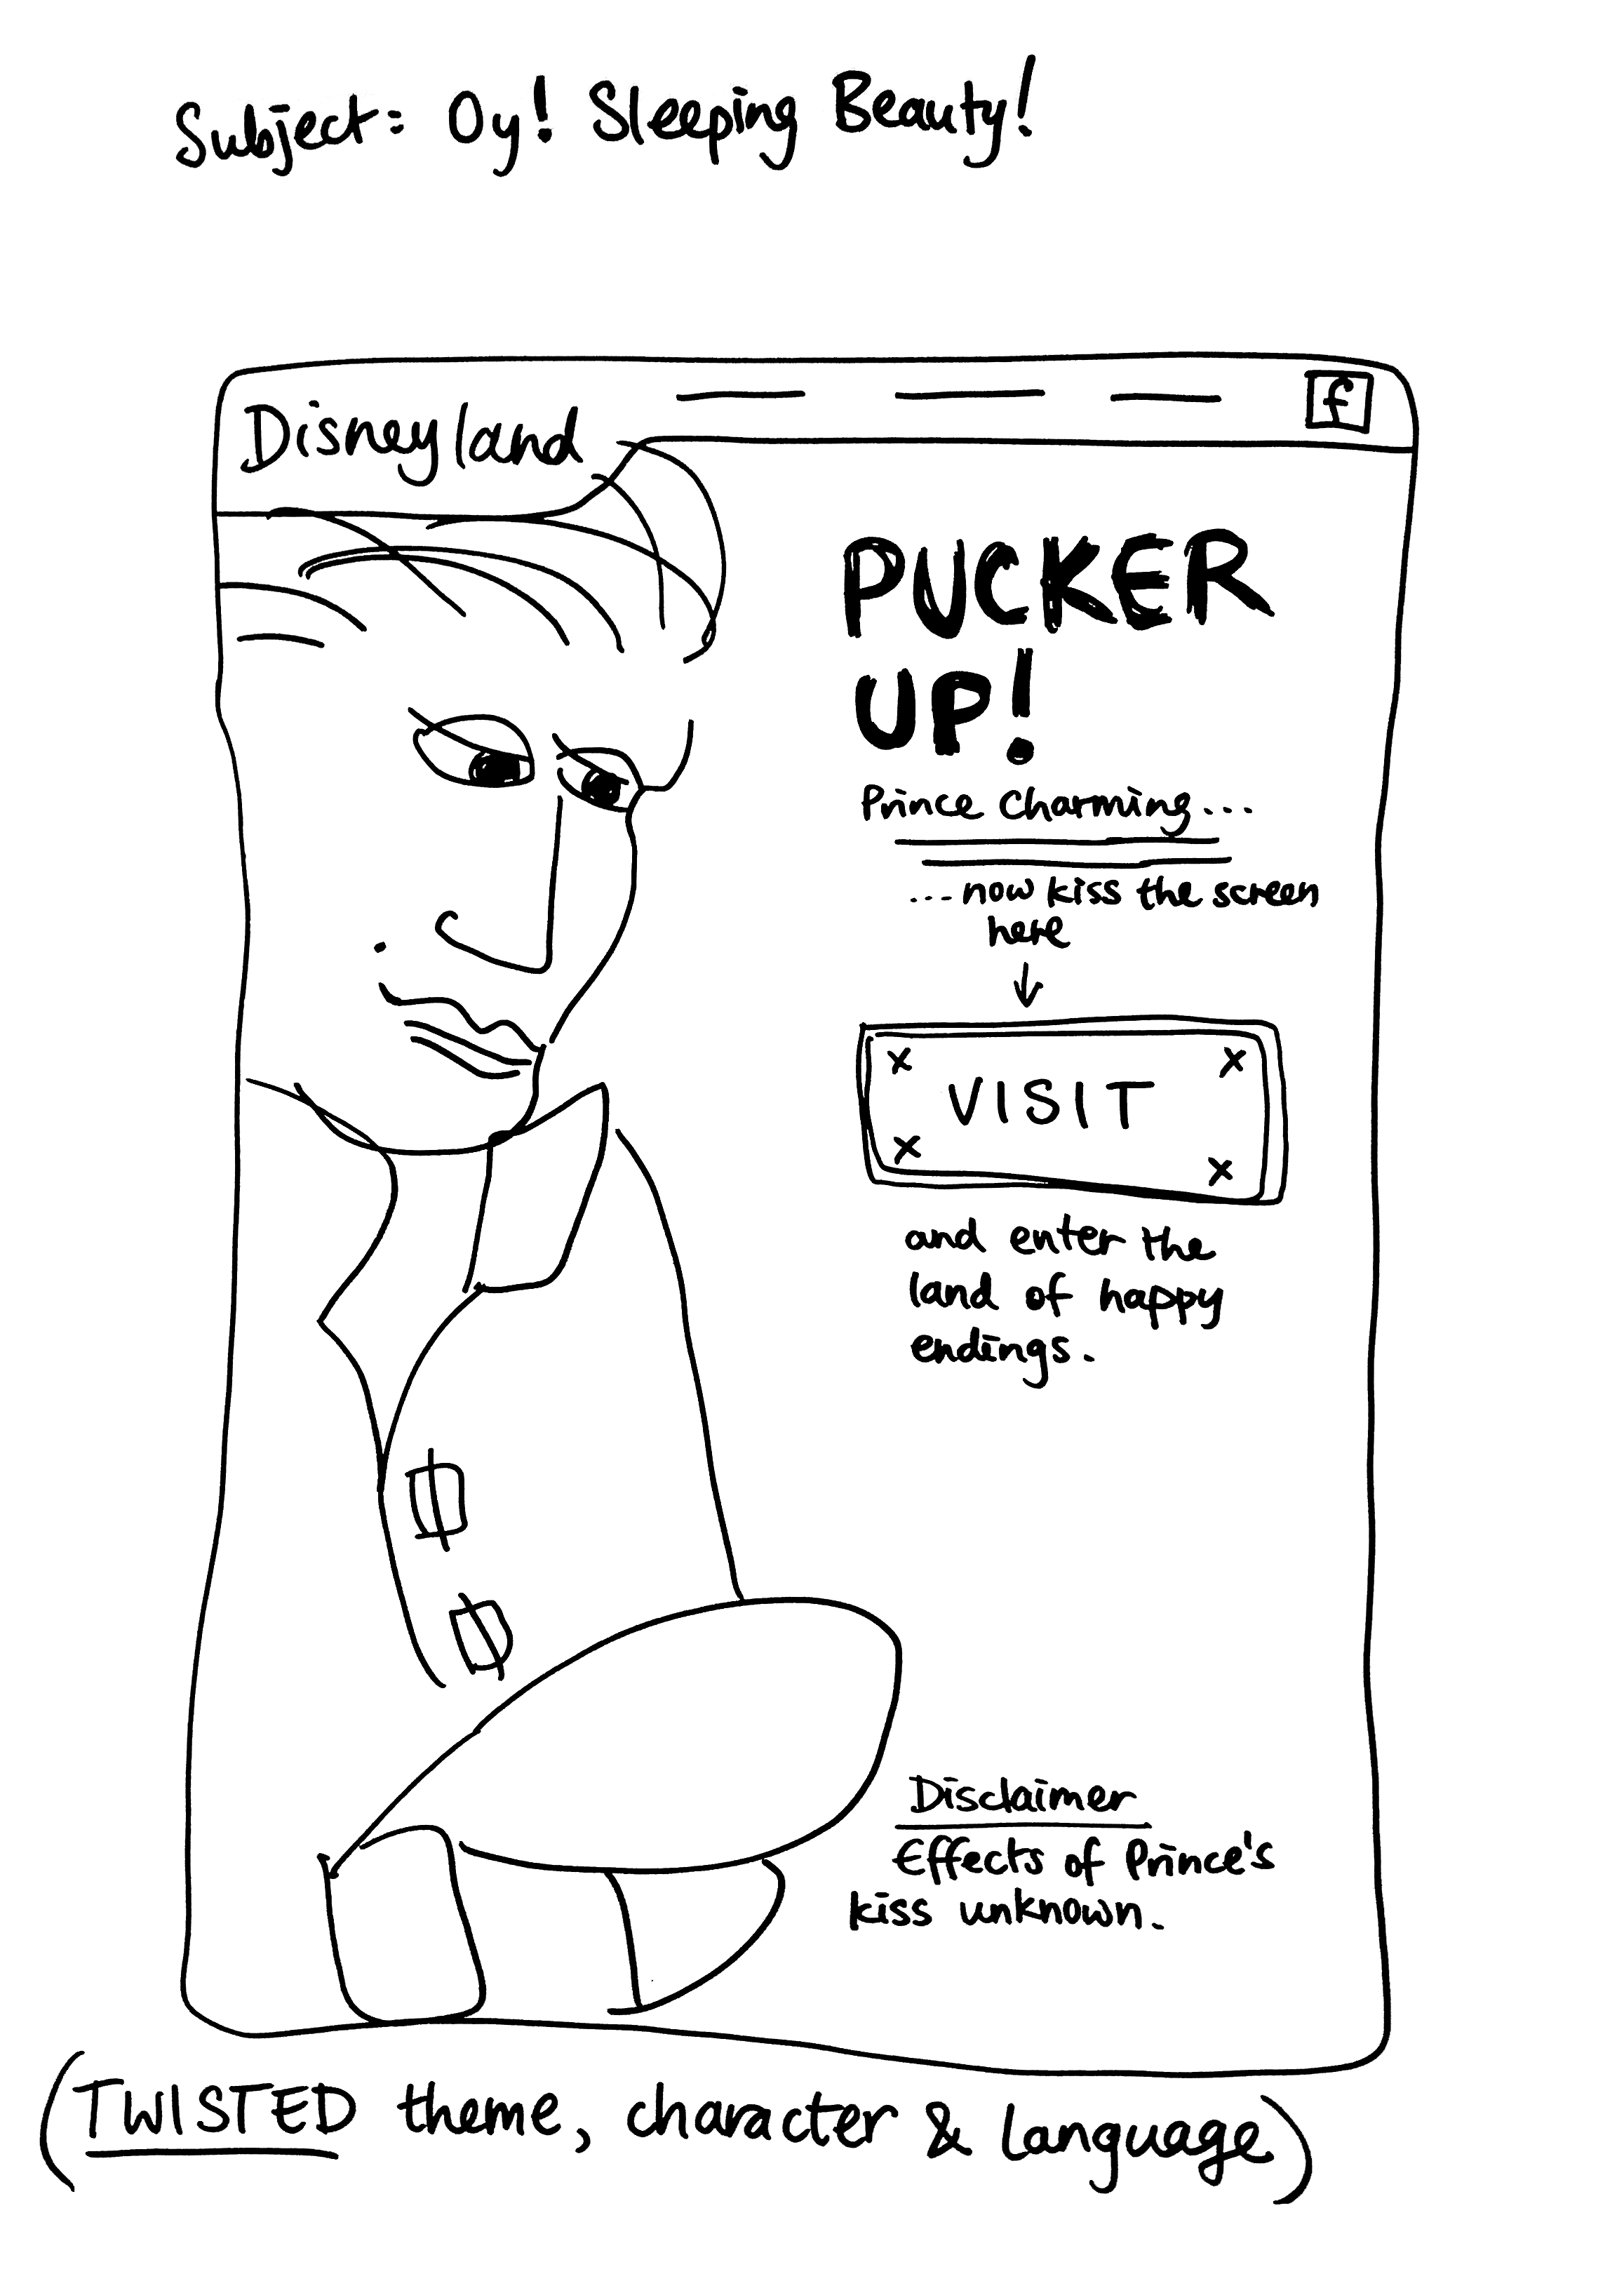 Subject: Oy! Sleeping Beauty!
Disneyland
f
PUCKER
UP!
Prince Charming...
...now kiss the screen
here
x x
VISIT
x x
and enter the
land of happy
endings.
Disclaimer
Effects of Prince's
kiss unknown.
(TWISTED theme, character & language)